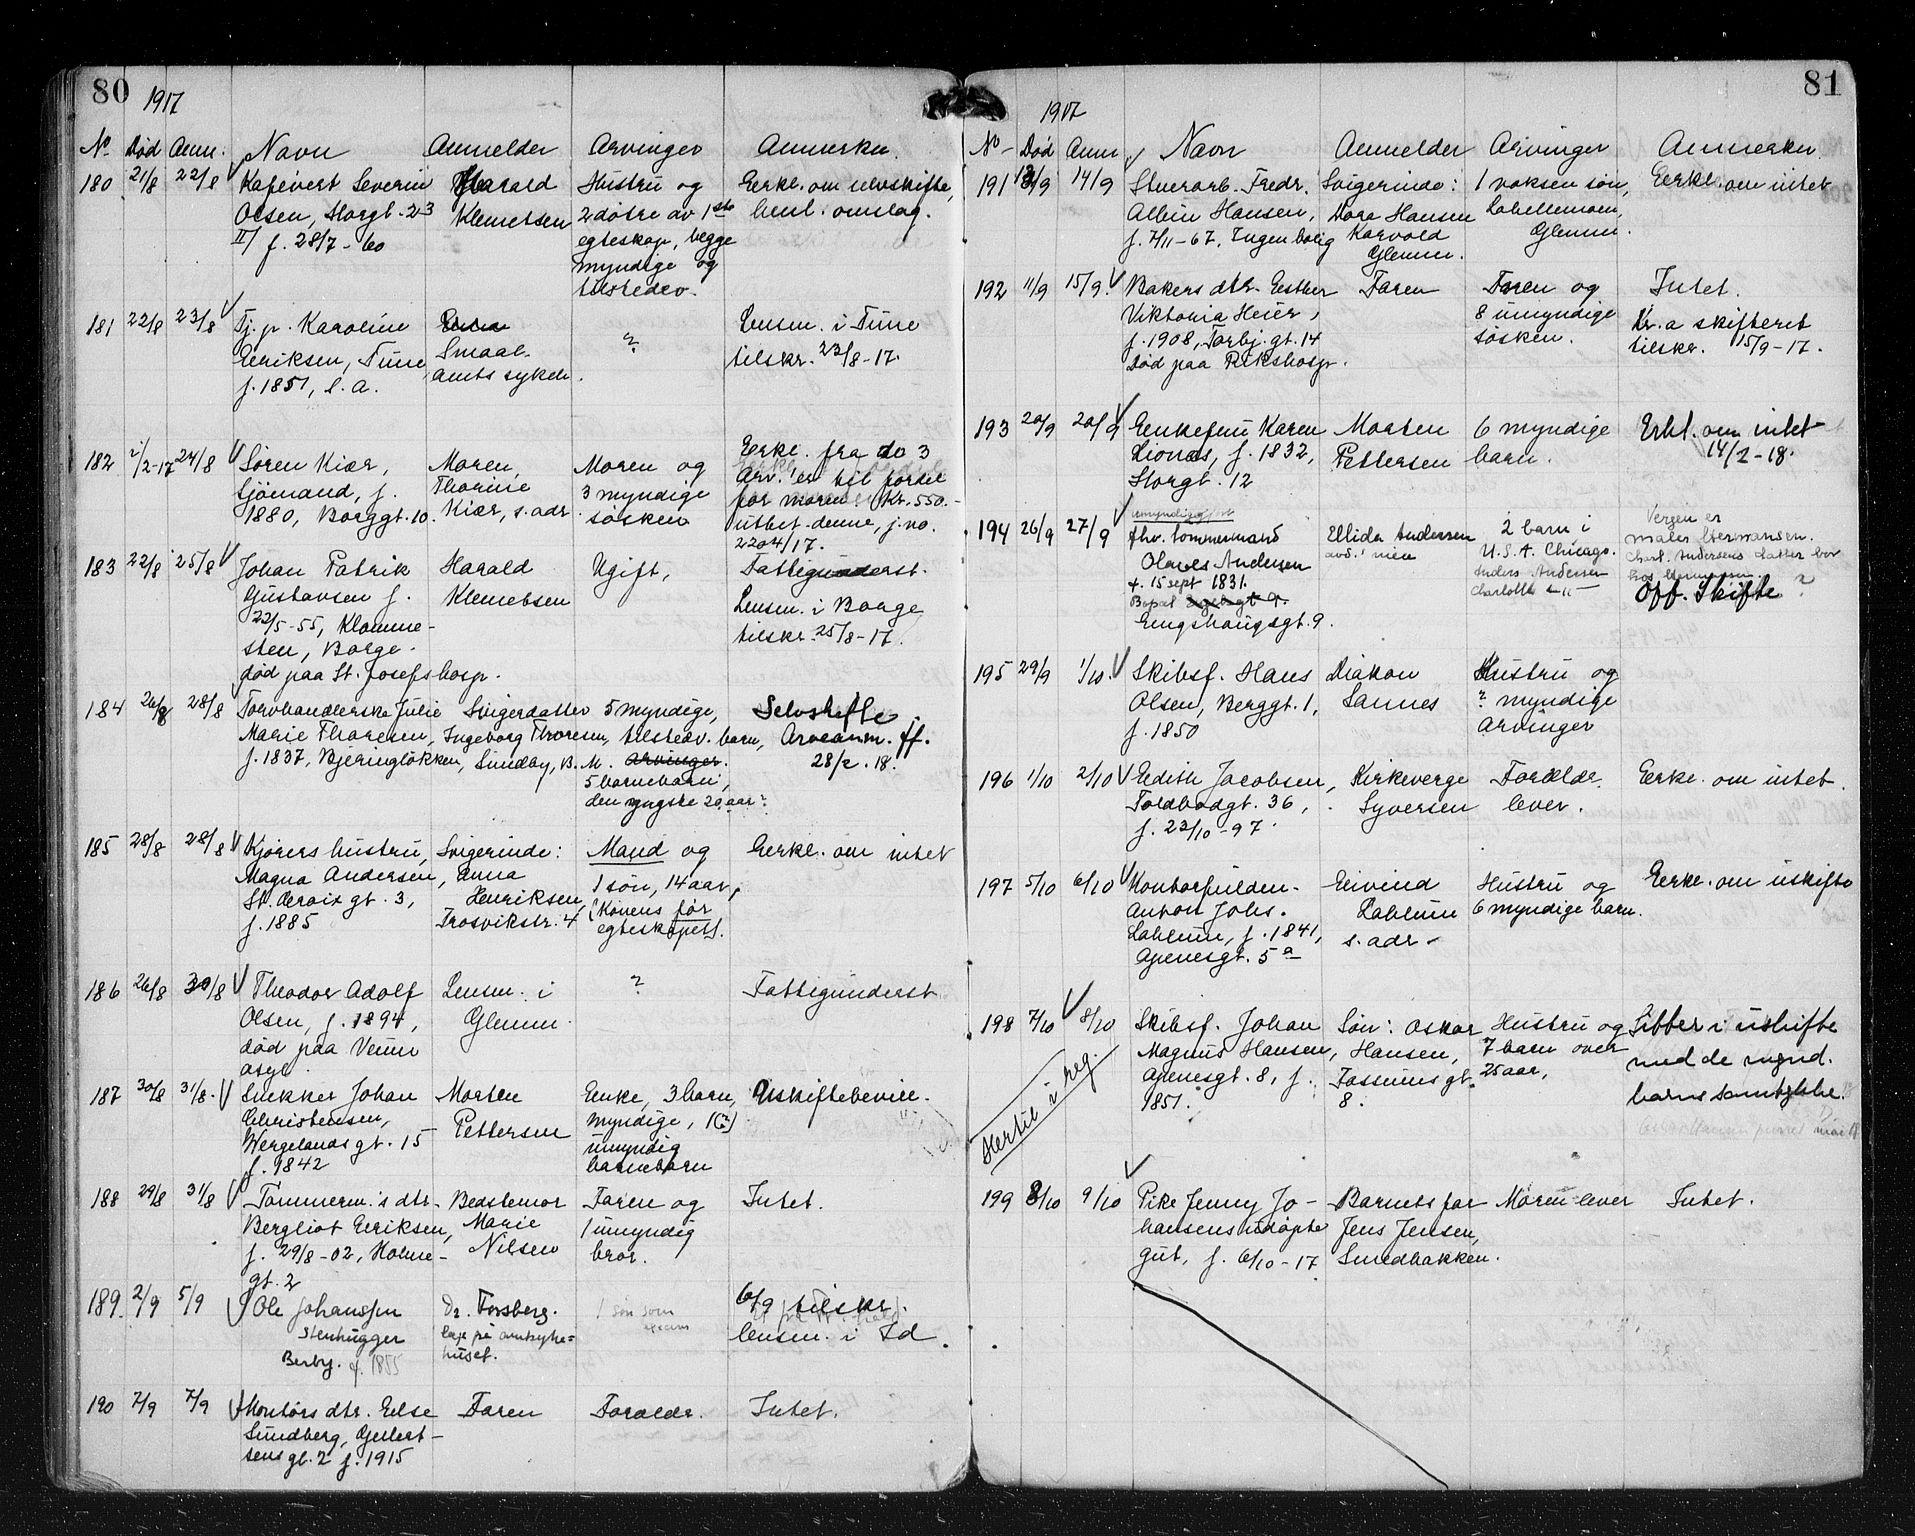 80
1917
No. Død Anm. Navn Anmelder Arvinger Anmerkn.
180 21/8 22/8 Kafévert Severin Harald Hustru og Erkl. om selvskifte,
Olsen, Storgt. 23 Klemetsen 2 døtre av 1ste henl. omslag.
II/ f. 28/7-60 egteskap, begge
myndige og
tilstedev.
181 22/8 23/8 Tj.p. Karoline Smaal. ? Lensm. i Tune
Eriksen, Tune, amts sykeh. tilskr. 23/8-17.
f. 1851, s.a.
182 2-17 24/8 Søren Kiær, Moren, Moren og Erkl. fra de 3
Sjömand, f. Thorine 3 myndige arv. er til fordel
1880, Borggt. 10. Kiær, s. adr. søsken for moren. Kr. 550.-
utbet. denne, j.no.
2204/17.
183 22/8 25/8 Johan Patrik Harald Ugift, Fattigunderst.
Gustavsen f. Klemetsen Lensm. i Borge
22/5-55, Klomme- tilskr. 25/8-17.
sten, Borge.
død paa St. Josefs hosp.
184 26/8 28/8 Torvhandlerske Julie Svigerdatter 5 myndige, Selvskifte
Marie Thoresen, Ingeborg Thoresen, tilstedv. barn, Arveanm. ff.
f. 1837, Bjeringløkken, Sundby, B. M. Arvinger. 28/2. 18.
5 barnebarn,
den yngste 20 aar.
185 28/8 28/8 Kjørers hustru, Svigerinde: Mand og Erkl. om intet
Magna Andersen, Anna 1 søn, 14 aar,
St. Croix gt. 3, Henriksen, (Konens før
f. 1885 Trosvikstr. 4 egteskapet).
186 26/8 30/8 Theodor Adolf Lensm. i ? Fattigunderst
Olsen, f. 1894, Glemm.
død paa Veum
asyl.
187 30/8 31/8. Snekker Johan Morten Enke, 3 barn, Uskiftebevill.
Christensen, Pettersen myndige, 1(?)
Wergelandsgt. 15 umyndig
f. 1842 barnebarn
188 29/8 31/8 Tømmerm.'s dtr. Bedstemor Faren og Intet.
Bergliot Eriksen, Marie 1 umyndig
f. 29/8-02, Holme- Nilsen bror.
gt. 2
189. 2/9 5/9 Ole Johanssen Dr. Forsberg. 1 søn som 6/9 tilskr.
Stenhugger læge på amtsyke= lensm. i Id.
Berby. f. 1855 huset.
190 7/9 7/9 Montørs dtr. Else Faren Forældr. Intet.
Sundberg, Gulbert-
sens gt. 2 f. 1915
81
1917
No Død Anm Navn Anmelder Arvinger Anmerkn.
191 13/9 14/9 Stuerarb. Fredr. Svigerinde: 1 voksen søn, Erkl. om intet
Albin Hansen, Dora Hansen Labellemoen,
f. 7/11-67, Ingen bolig Karvold Glemm.
Glemm.
192 11/9 15/9. Bakers dtr. Esther Faren Faren og Intet.
Viktoria Heier, 8 umyndige Kr.a skifteret
f. 1908, Torbj. gt. 14 søsken. tilskr. 15/9-17.
Død paa Rikshosp.
193 20/9 20/9 Enkefru Karen Morten 6 myndige Erkl. om intet
Lionæs, f. 1832, Pettersen barn. 14/2-18.
Storgt. 12
194 26/9 27/9 fhv. tømmermand Ellida Andersen 2 barn i Vergen er
Olaves Andersen avd.s niece U.S.A. Chicago. maler Hermansen.
f. 15 sept 1831. Anders Andersen Charl. Andersens datter bor
Bopæl Charlotte —"— hos Hermansen
Engshaugsgt. 9. Off. Skifte ?
195 29/9 1/10. Skibsf. Hans Diakon Hustru og
Olsen, Berggt. 1, Sannes ? myndige
f. 1850 arvinger
196 1/10 2/10 Edith Jacobsen, Kirkeverge Forældr. Erkl. om intet.
Toldbodgt. 36, Syversen lever.
f. 23/10-97.
197 5/10 6/10 Kontorfuldm. Eivind Hustru og Erkl. om uskifte
Anton Johs. Lahlum 6 myndige barn.
Lahlum, f. 1841, s. adr.
Apenesgt. 5 a
198 7/10 8/10 Skibsf. Johan Søn: Oskar Hustru og Sitter i uskifte
Magnus Hansen, Hansen, 7 barn over med de mynd.
Apenesgt. 8, f. Fossumsgt. 25 aar, barns samtykke.
1851. 8.
Hertil i reg.
199 8/10 9/10 Pike Jenny Jo- Barnets far Moren lever Intet.
hansens udøpte Jens Jensen,
gut, f. 6/10-17 Smedbakken.